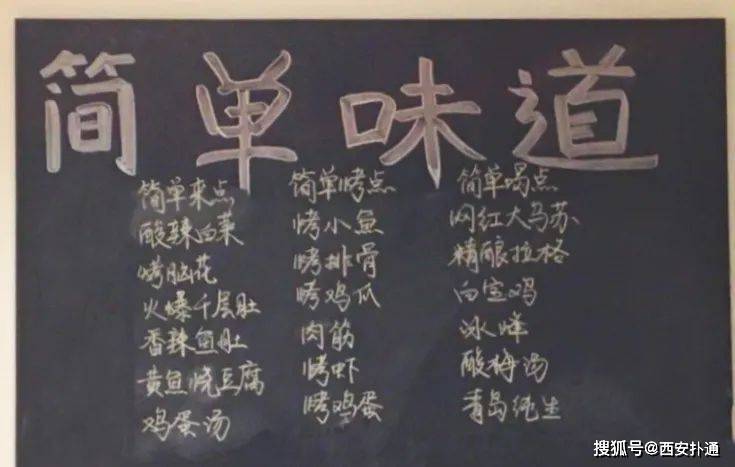 简单味道
简单来点
酸辣白菜
烤脑花
火爆千层肚
香辣鱼肚
黄鱼烧豆腐
鸡蛋汤
简单烤点
烤小鱼
烤排骨
烤鸡爪
肉筋
烤虾
烤鸡蛋
简单喝点
网红大马苏
精酿拉格
白宝鸡
冰峰
酸梅汤
青岛纯生
搜狐号@西安扑通